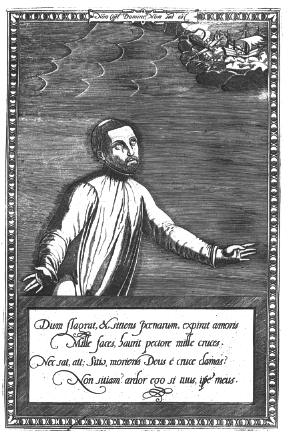 Non sat Domine, Non sat est
Dum flagrat, & sitiens pœnarum, expirat amoris
Mille faces, haurit pectore mille cruces.
Nec sat, ait: Sitio, moriens Deus è cruce clamas?
Non sitiam? ardor ego si tuus, ipse meus.